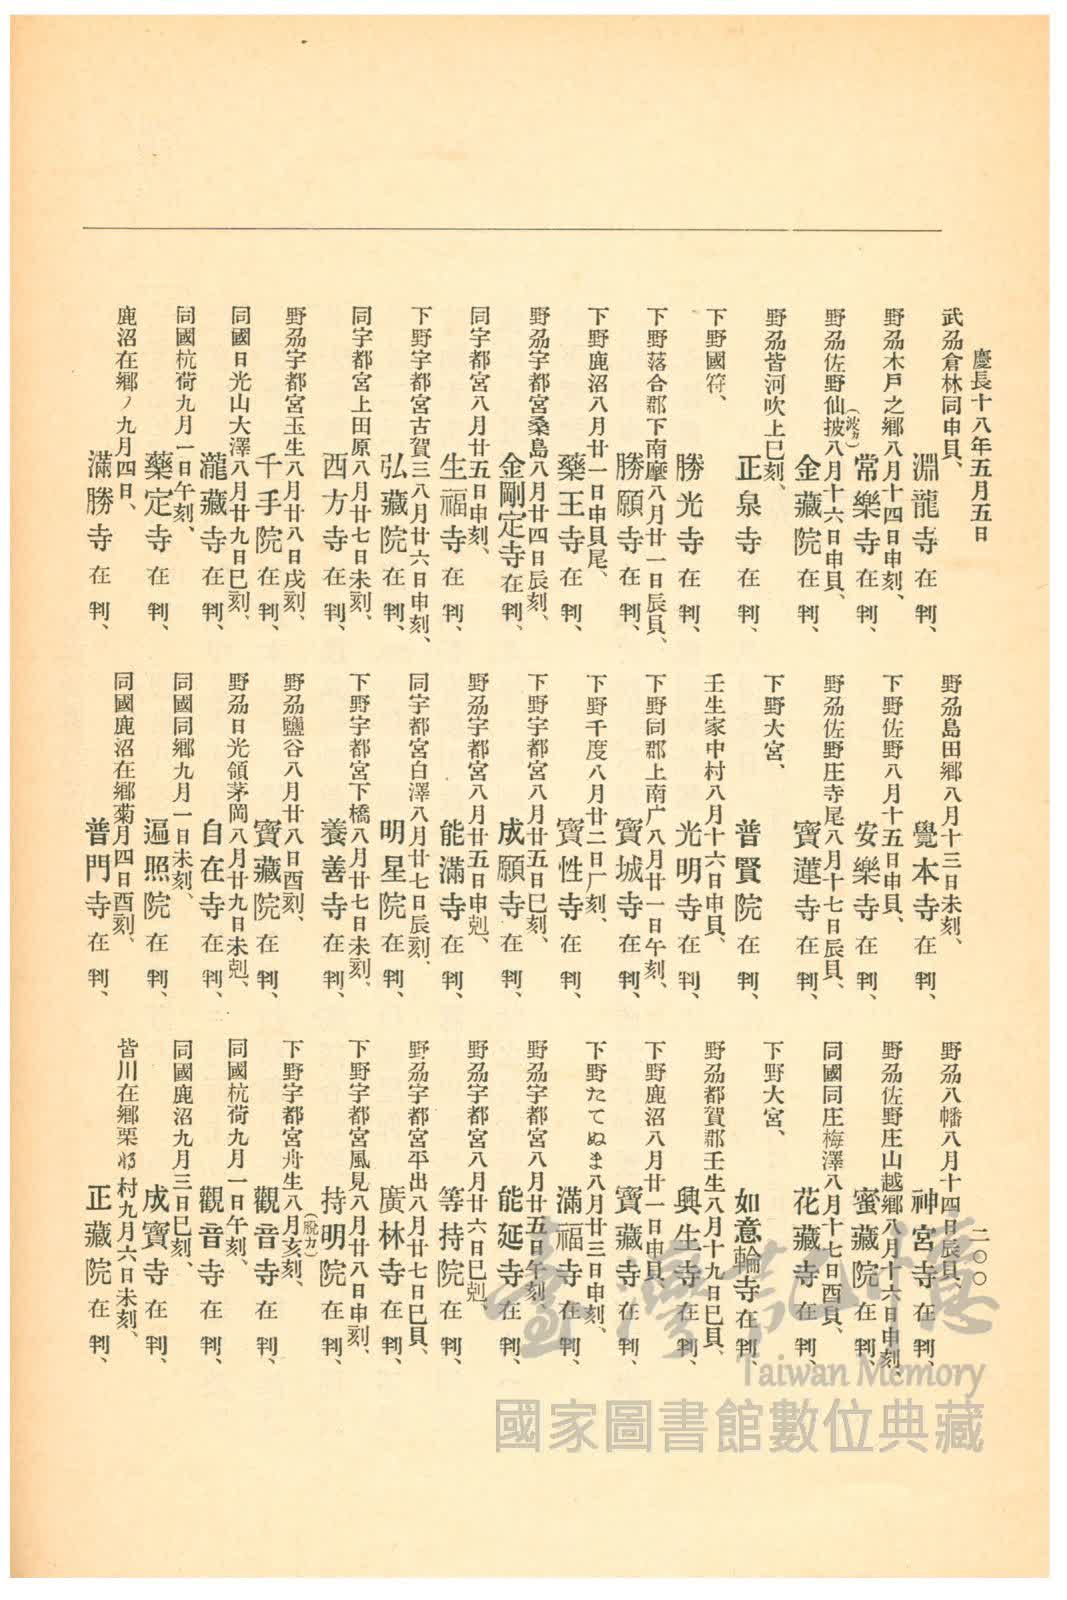 慶長十八年五月五日
二〇〇
武刕倉林同申貝、
淵龍寺在判、
野刕木戸之鄕八月十四日申刻、
常樂寺在判、
野刕佐野仙披(波カ)八月十六日申貝、
金藏院在判、
野刕皆河吹上巳刻、
正泉寺在判、
下野國符、
勝光寺在判、
下野落合郡下南摩八月廿一日辰貝、
勝願寺在判、
下野鹿沼八月廿一日申貝尾、
藥王寺在判、
野刕宇都宮桑島八月廿四日辰刻、
金剛定寺在判、
同宇都宮八月廿五日申刻、
生福寺在判、
下野宇都宮古賀三八月廿六日申刻、
弘藏院在判、
同宇都宮上田原八月廿七日未刻、
西方寺在判、
野刕宇都宮玉生八月廿八日戌刻、
千手院在判、
同國日光山大澤八月廿九日巳刻、
瀧藏寺在判、
同國杭荷九月一日午刻、
藥定寺在判、
鹿沼在鄕ノ九月四日、
滿勝寺在判、
野刕島田鄕八月十三日未刻、
覺本寺在判、
下野佐野八月十五日申貝、
安樂寺在判、
野刕佐野庄寺尾八月十七日辰貝、
寶蓮寺在判、
下野大宮、
普賢院在判、
壬生家中村八月十六日申貝、
光明寺在判、
下野同郡上南广八月廿一日午刻、
寶城寺在判、
下野千度八月廿二日厂刻、
寶性寺在判、
下野宇都宮八月廿五日巳刻、
成願寺在判、
野刕宇都宮八月廿五日申剋、
能滿寺在判、
同宇都宮白澤八月廿七日辰刻、
明星院在判、
下野宇都宮下橋八月廿七日未刻、
養善寺在判、
野刕鹽谷八月廿八日酉刻、
寶藏院在判、
野刕日光領茅岡八月廿九日未剋、
自在寺在判、
同國同鄕九月一日未刻、
遍照院在判、
同國鹿沼在鄕菊月四日酉刻、
普門寺在判、
野刕八幡八月十四日辰貝、
神宮寺在判、
野刕佐野庄山越鄕八月十六日申刻、
蜜藏院在判、
同國同庄梅澤八月十七日酉貝、
花藏寺在判、
下野大宮、
如意輪寺在判、
野刕都賀郡壬生八月十九日巳貝、
興生寺在判、
下野鹿沼八月廿一日申貝、
寶藏寺在判、
下野たてぬま八月廿三日申刻、
滿福寺在判、
野刕宇都宮八月廿五日午刻、
能延寺在判、
野刕宇都宮八月廿六日巳剋、
等持院在判、
野刕宇都宮平出八月廿七日巳貝、
廣林寺在判、
下野宇都宮風見八月廿八日申刻、
持明院在判、
下野宇都宮舟生八月(脫カ)亥刻、
觀音寺在判、
同國杭荷九月一日午刻、
觀音寺在判、
同國鹿沼九月三日巳刻、
成寶寺在判、
皆川在鄕栗村九月六日未刻、
正藏院在判、
臺灣記憶
Taiwan Memory
國家圖書館數位典藏